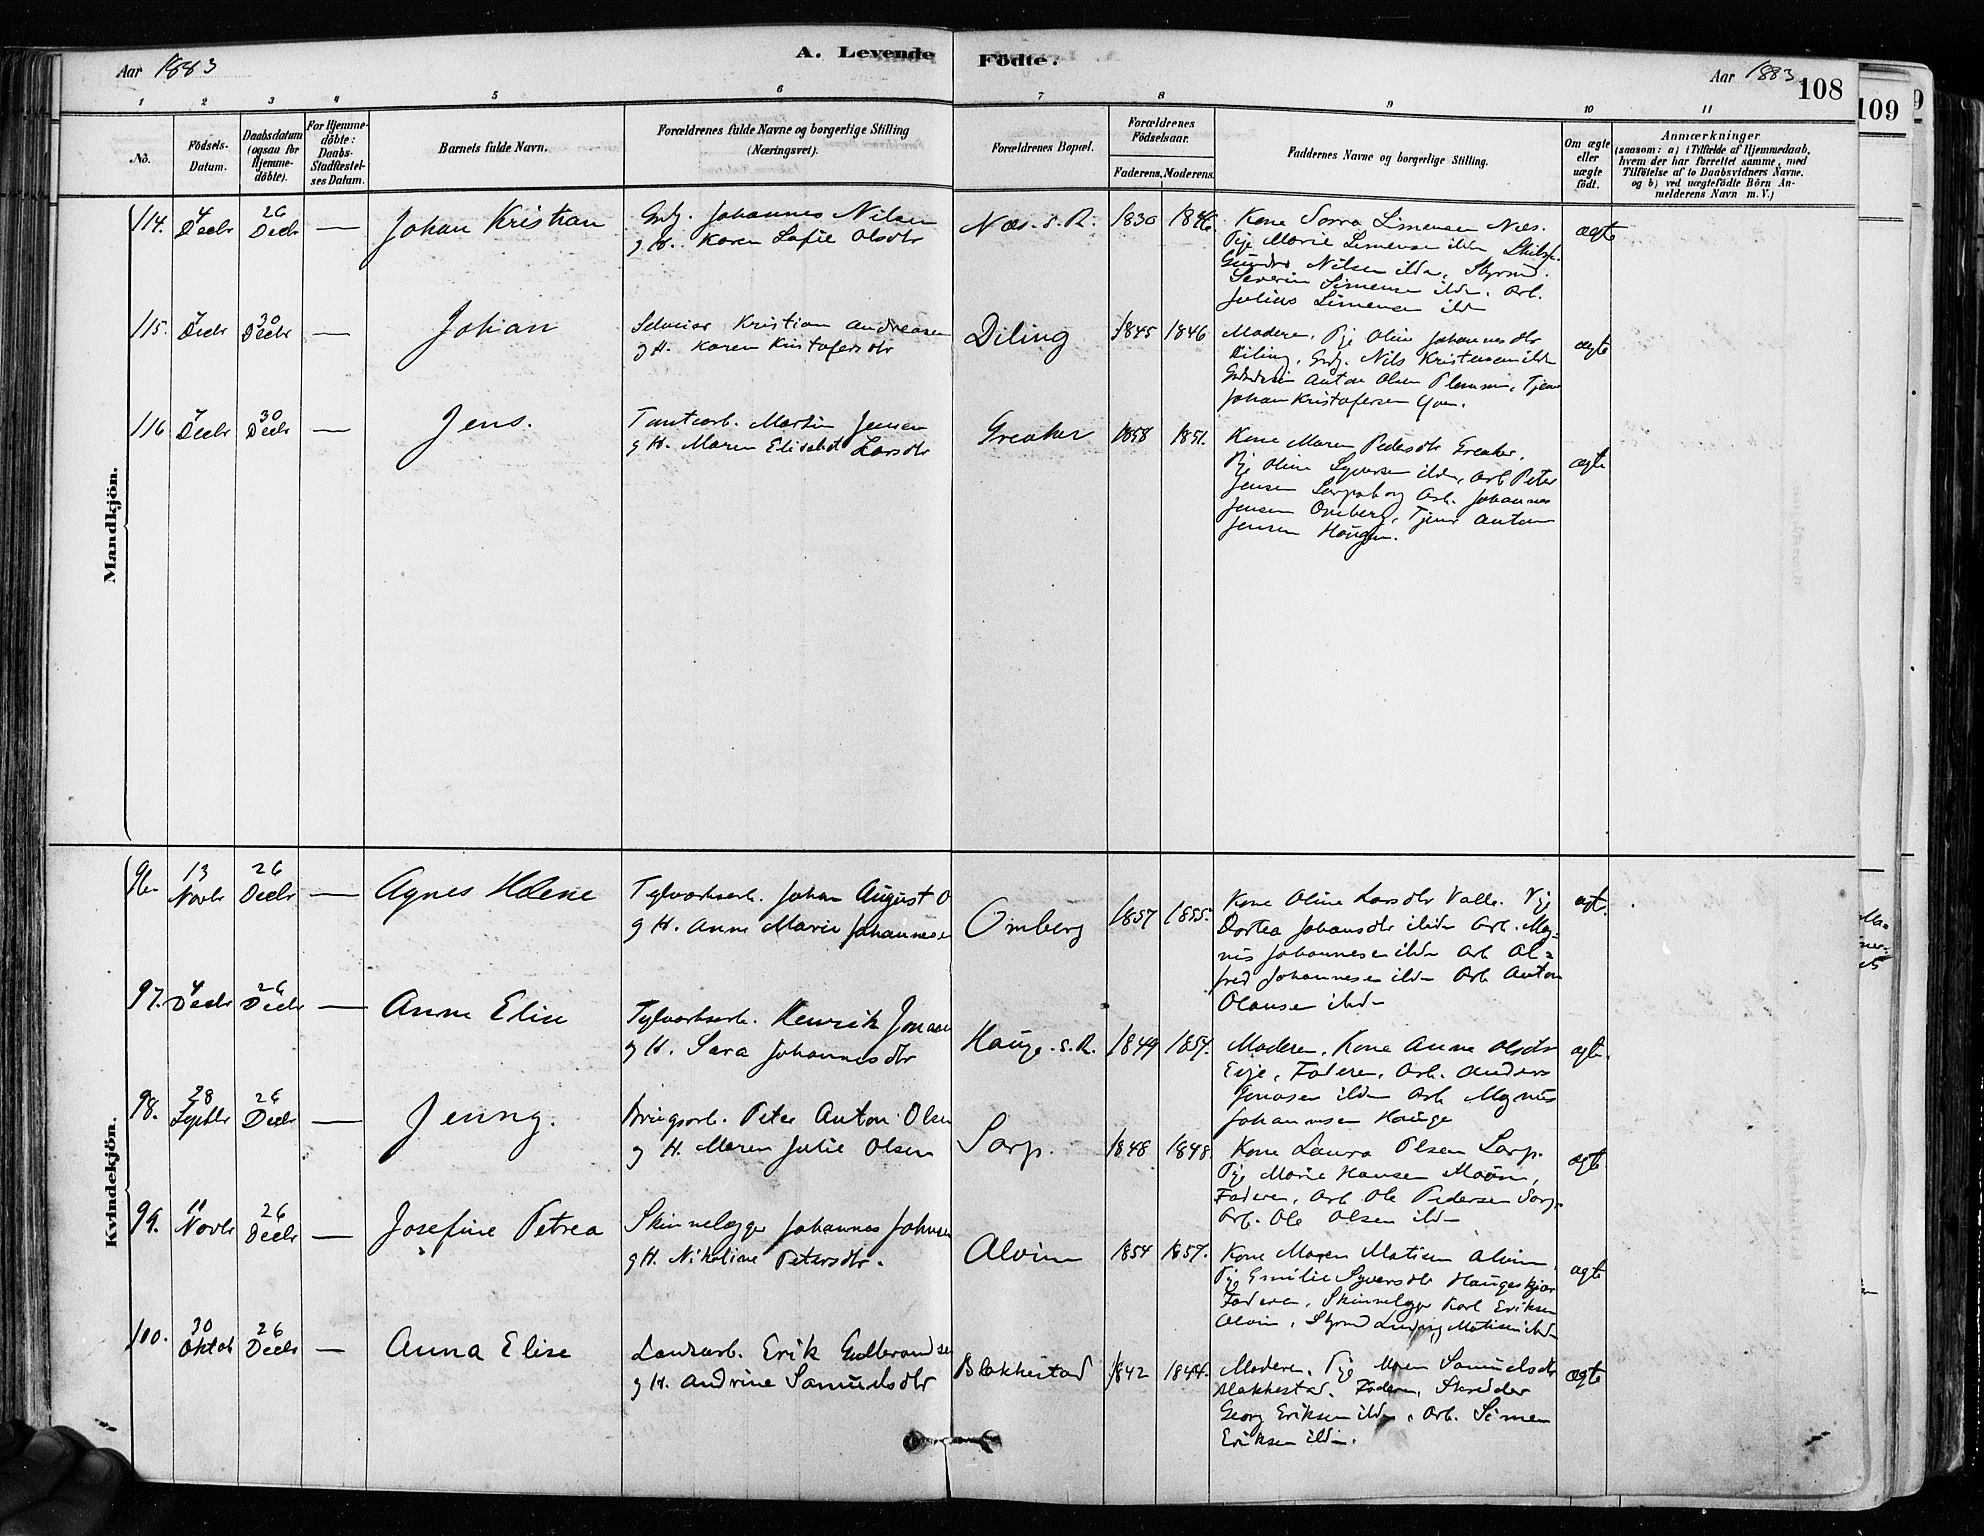 A. Levende Födte.
Aar 1883
Aar 1883
108
109
1 2 3 4 5 6 7 8 9 10 11
No.
Födsels-
Datum.
Daabsdatum
(ogsaa for
Hjemme-
döbte).
For Hjemme-
döbte:
Daabs-
Stadfæstel-
ses Datum.
Barnets fulde Navn.
Forældrenes fulde Navne og borgerlige Stilling
(Næringsvei).
Forældrenes Bopæl.
Forældrenes
Födselsaar.
Faderens. Moderens.
Faddernes Navne og borgerlige Stilling.
Om ægte
eller
uægte
födt.
Anmærkninger
(saasom: a) i Tilfælde af Hjemmedaab,
hvem der har forrettet samme, med
Tilföielse af to Daabsvidners Navne.
og b) ved uægtefödte Börn An-
melderens Navn m. V.)
Mandkjön.
114. 4 Decbr 26 Decbr — Johan Kristian
Grdj. Johannes Nilsen
g H. Karen Sofie Olsdtr
Næs. s. R. 1830 1846.
Kone Simensen Næs.
Pije Marie Simensen ibdm
Nilsen ibdm, Styrmd.
Severin Simensen ibdm. Arb.
Julius Simensen ibdm
ægte
115. 7 Decbr 30 Decbr — Johan
Kristian Andreasen
g H. Karen Kristofersdtr
Diling 1845 1846
Moderen, Pije Oline Johannesdtr
Diling, Grdj. Nils Kristensen ibdm
Anton Olsen Tjener
Johan Kristofersen
ægte
116 7 Decbr 30 Decbr — Jens.
Tomtearb. Martin Jensen
g H. Maren Elisabet Larsdtr
Greaker 1858 1851.
Kone Maren Pedersdtr Greaker,
Pije Oline Syversen ibdm, Arb. Peter
Jensen Sarpsborg Arb. Johannes
Jensen Omberg, Tjener Anton
Jensen Haugen.
ægte
Kvindekjön.
96. 13 Novbr 26 Decbr — Agnes Helene
Teglværksarb. Johan August O
g H. Anne Marie Johannesen
Omberg 1857 1855.
Kone Oline Larsdtr Valle. Pije
Dortea Johansdtr ibidm Arb. Mag=
nus Johannesen ibdm Arb Al=
fred Johannesen ibdm Arb Anton
Olausen ibdm
ægt.
97. 4 Decbr 26 Decbr — Anne Elise
Teglværksarb. Henrik Jonasen
g H. Sara Johannesdtr
Hauge. s. R. 1849 1857.
Moderen, Kone Anne Olsdtr
Eije, Faderen, Arb. Anders
Jonasen ibdm Arb Magnus
Johannesen Hauge
ægte
98. 28 Septbr 26 Decbr — Jenny.
Brugsarb. Peter Anton Olsen
g H. Maren Julie Olsen
Sarp. 1848 1848.
Kone Laura Olsen Sarp.
Pije Marie Hansen Moum,
Faderen, Arb Ole Pedersen Sarp,
Arb. Ole Olsen ibdm
ægte
99. 11 Novbr 26 Decbr — Josefine Petrea
Skinnelægger Johannes Johnsen
g H. Nikoline Petersdtr.
Alvim 1854 1857.
Kone Maren Matisen Alvim,
Pije Emilie Syversdtr Haugeskjær
Faderen, Skinnelægger Karl Eriksen
Alvim, Styrmd Ludvig Matisen ibdm
ægte
100. 30 Oktob 26 Decbr — Anna Elise
Landarb. Erik Gulbrandsen
g H. Andrine Samuelsdtr
Blakkestad 1842 1844.
Moderen, Pije Maren Samuelsdtr
Blakkestad. Faderen, Skrædder
Georg Eriksen ibdm, Arb. Simen
Eriksen ibdm.
ægte